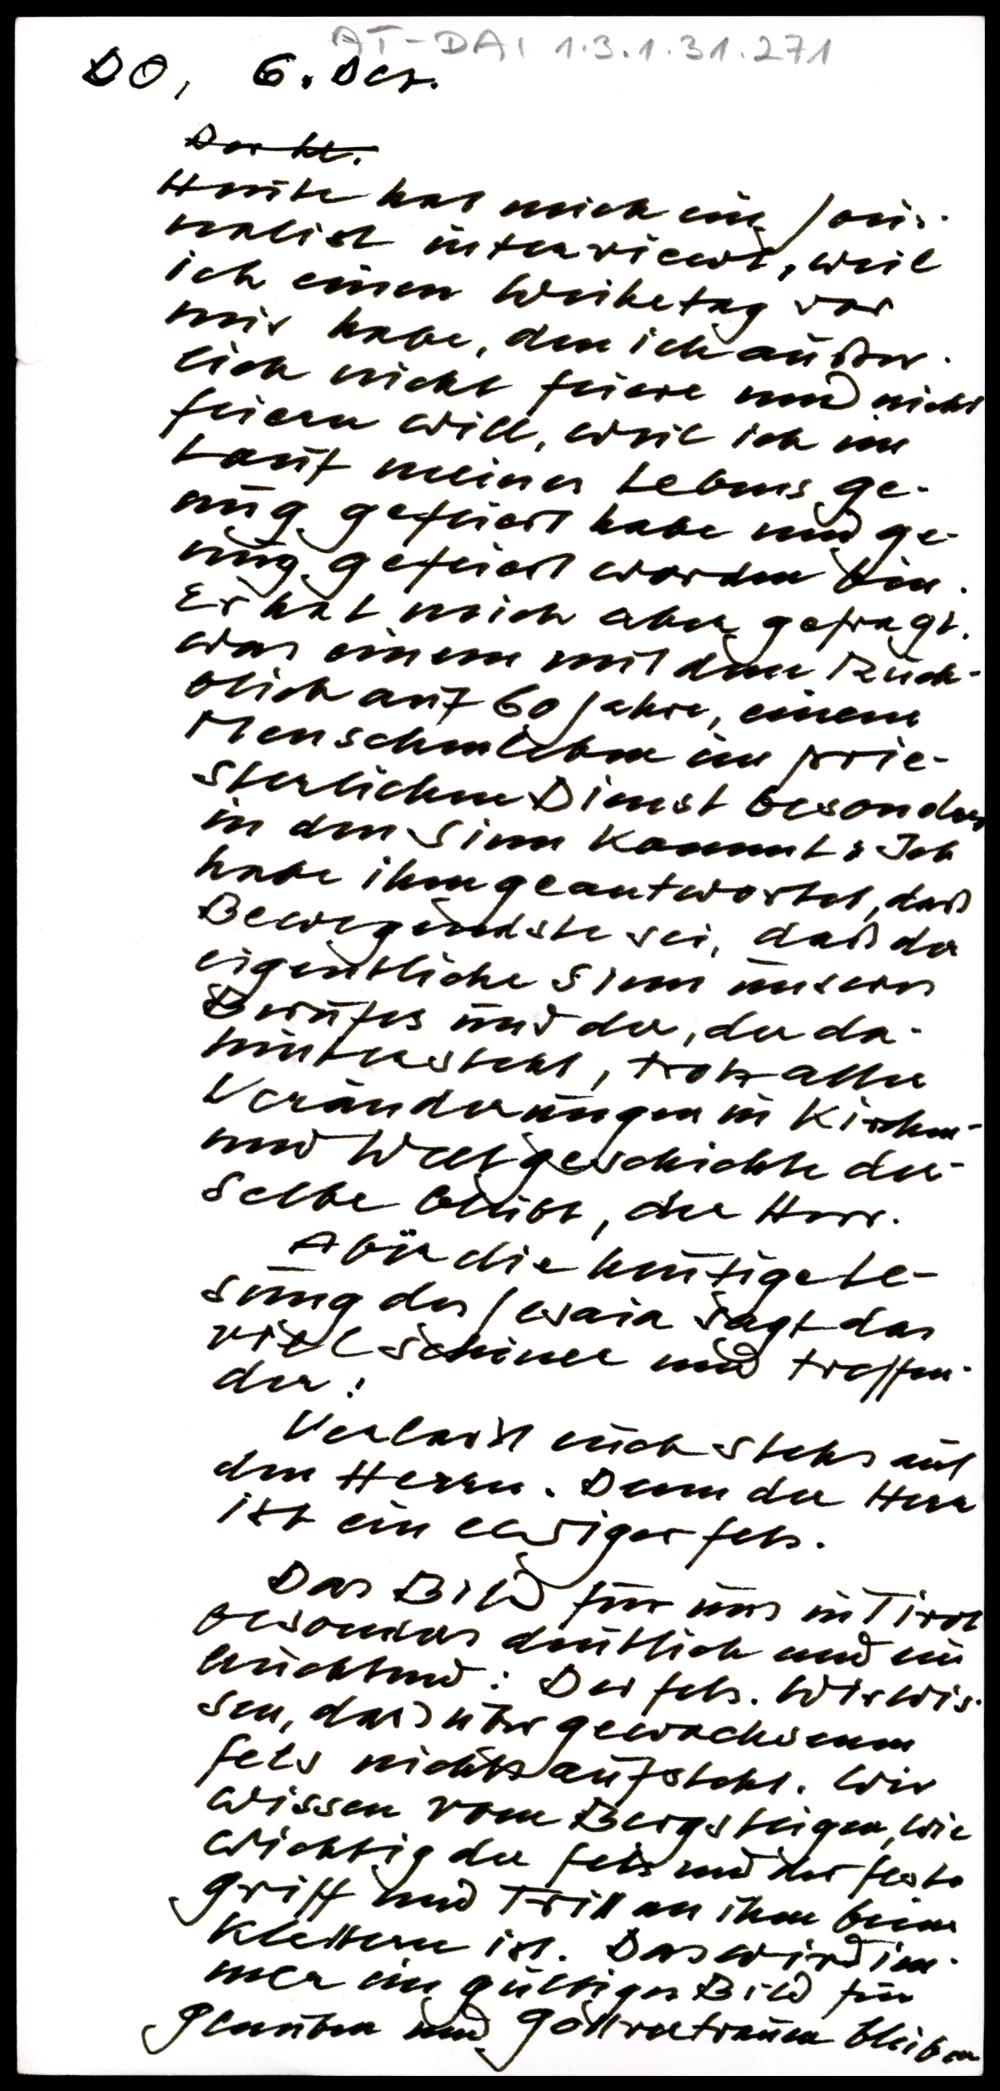 AT-DAI 1.3.1.31.271
DO, 6. Dez.
Heute hat mich ein Jour-
nalist interviewt, weil
ich einen Weihetag vor
mir habe, den ich äußer-
lich nicht feiere und nicht
feiern will, weil ich im
Lauf meines Lebens ge-
nug gefeiert habe und ge-
nug gefeiert worden bin.
Er hat mich aber gefragt,
was einem mit dem Rück-
blick auf 60 Jahre, einem
Menschenleben im prie-
sterlichen Dienst besonders
in den Sinn kommt: Ich
habe ihm geantwortet, daß
Bewegendste sei, daß der
eigentliche Sinn unseres
Berufes und der, der da-
hintersteht, trotz aller
Veränderungen in Kirchen-
und Weltgeschichte der-
selbe bleibt, der Herr.
Aber die heutige Le-
sung des Jesaia sagt das
viel schöner und treffen-
der:
Verlaßt euch stets auf
den Herrn. Denn der Herr
ist ein ewiger Fels.
Das Bild für uns in Tirol
besonders deutlich und ein
leuchtend: Der Fels. Wir wis-
sen, daß über gewachsenem
Fels nichts aufsteht. Wir
wissen vom Bergsteigen, wie
wichtig der Fels und der feste
Griff und Tritt an ihm beim
Klettern ist. Das wird im-
mer ein gültiges Bild für
Glauben und Gottvertrauen bleiben